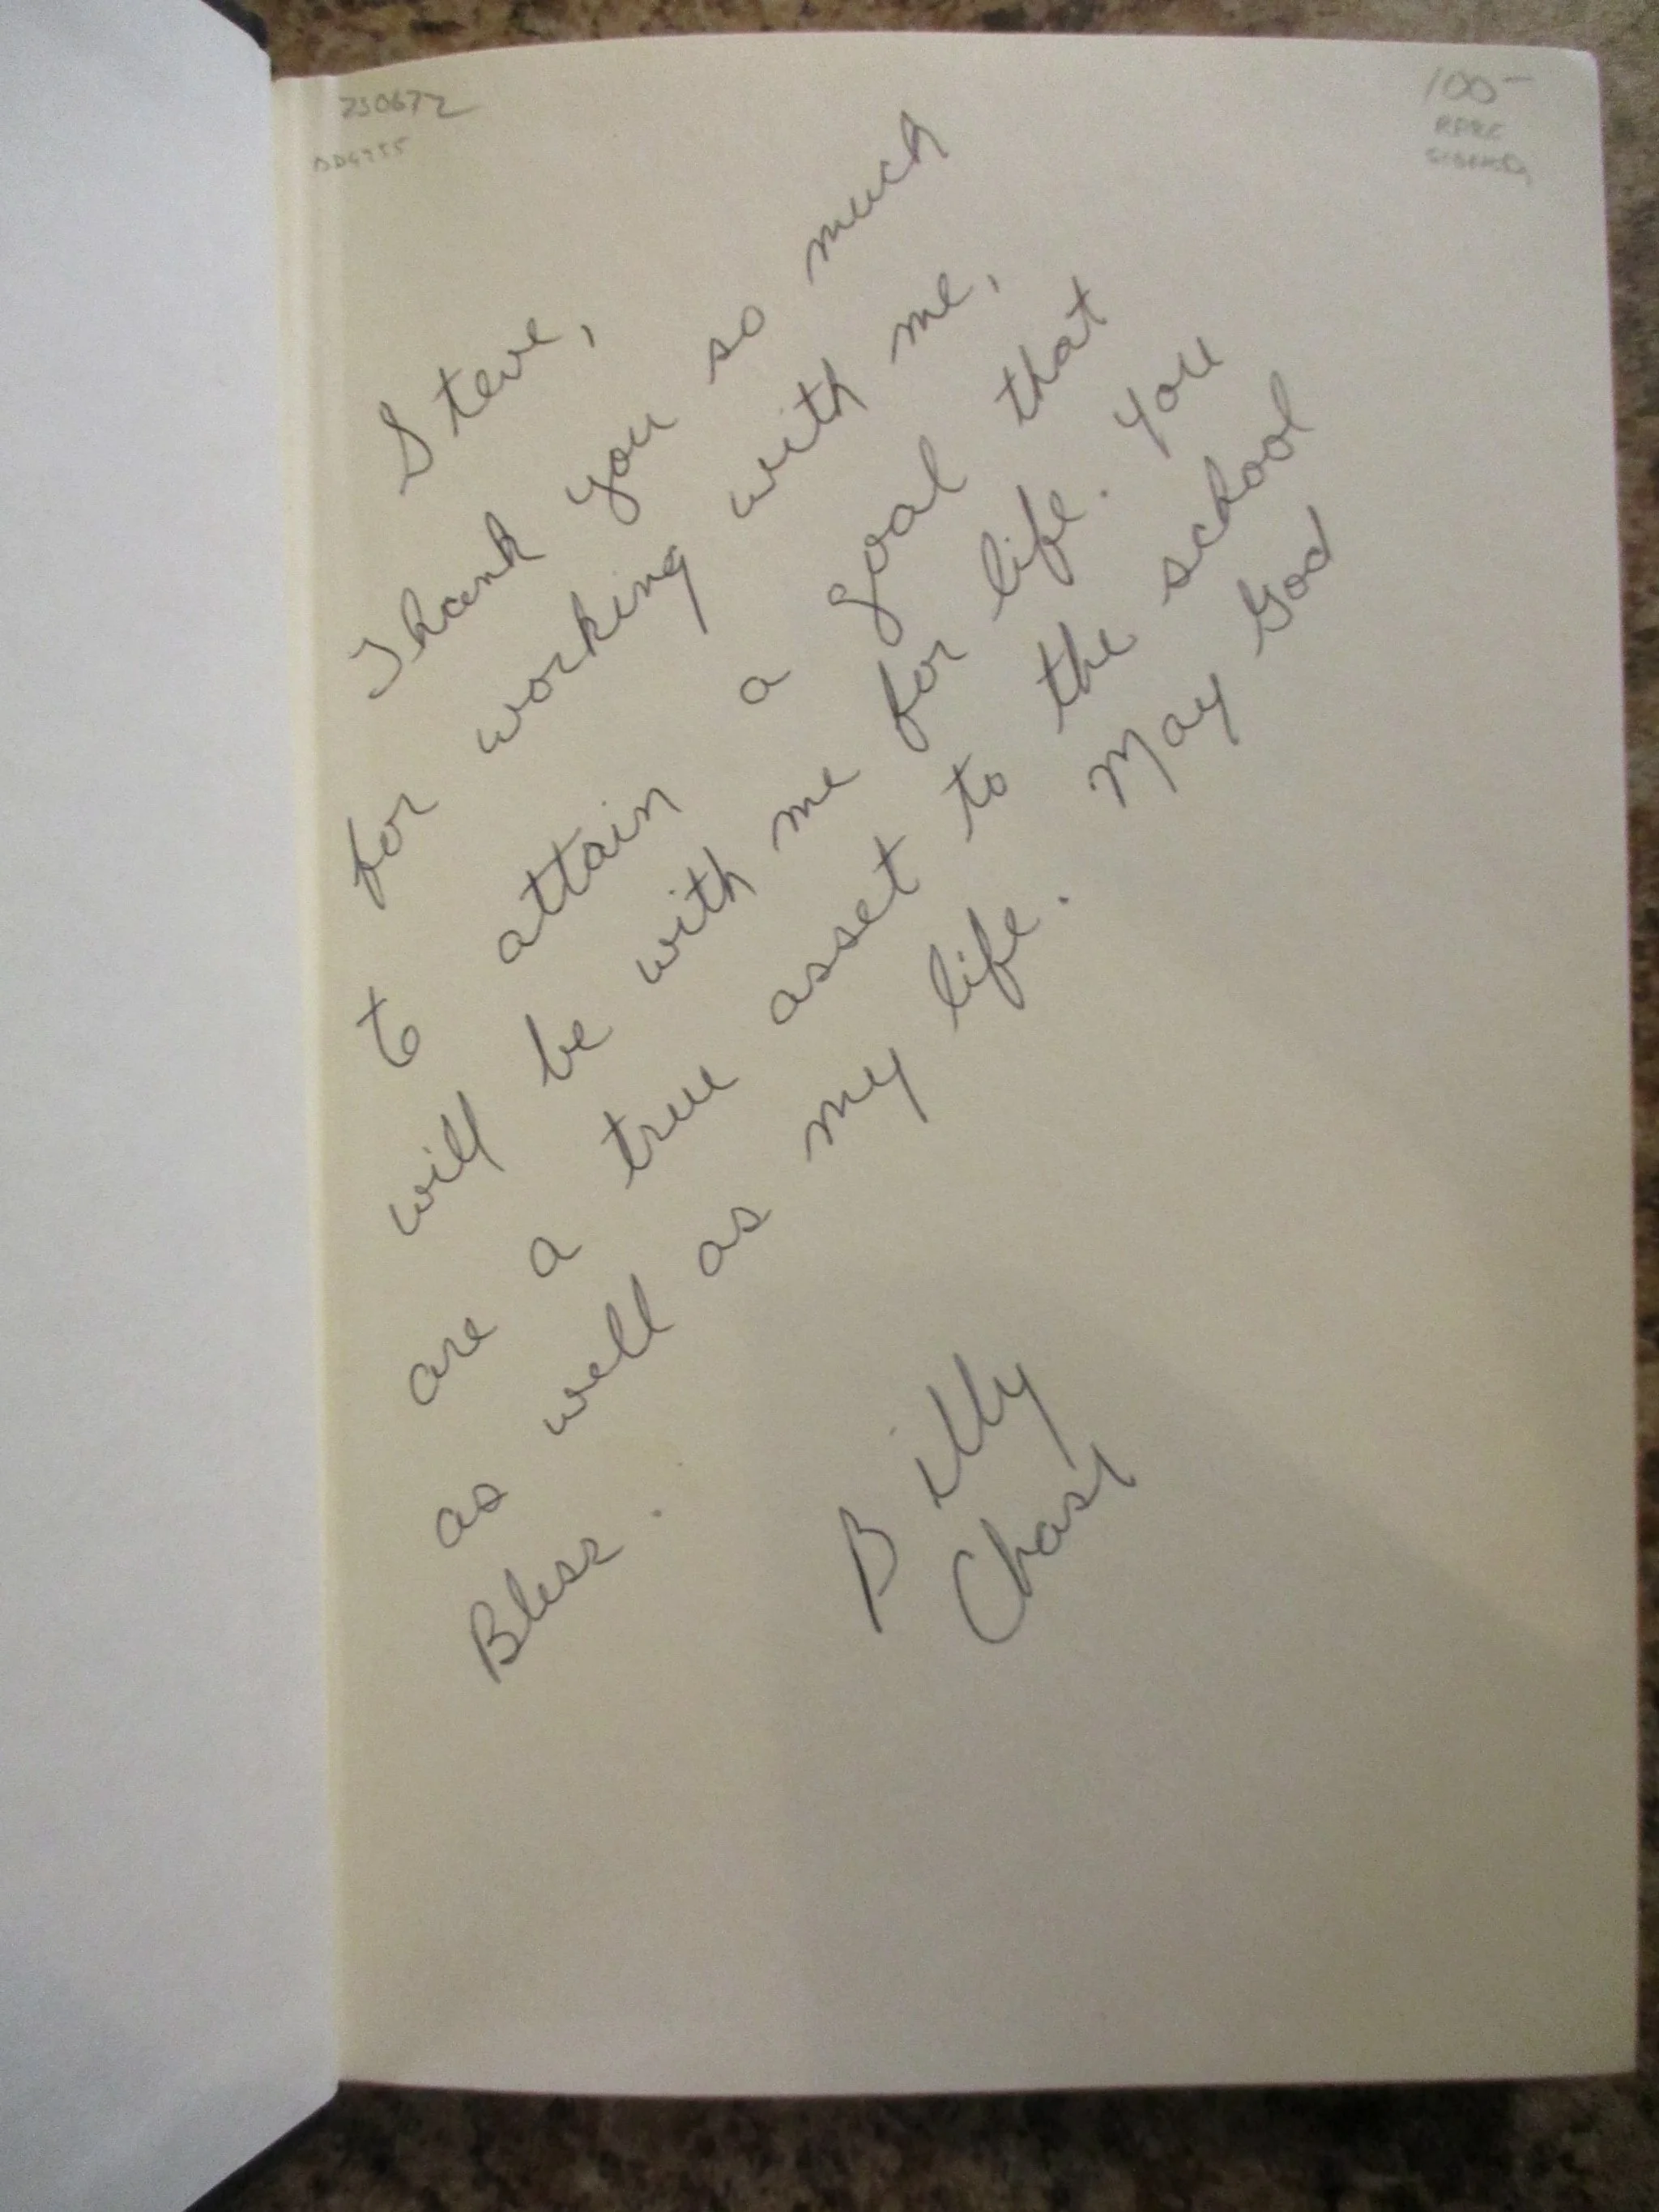 250672
100-
RARE
SIGNED
Steve,
Thank you so much
for working with me,
to attain a goal that
will be with me for life. You
are a true asset to the school
as well as my life. May God
Bless.
Billy